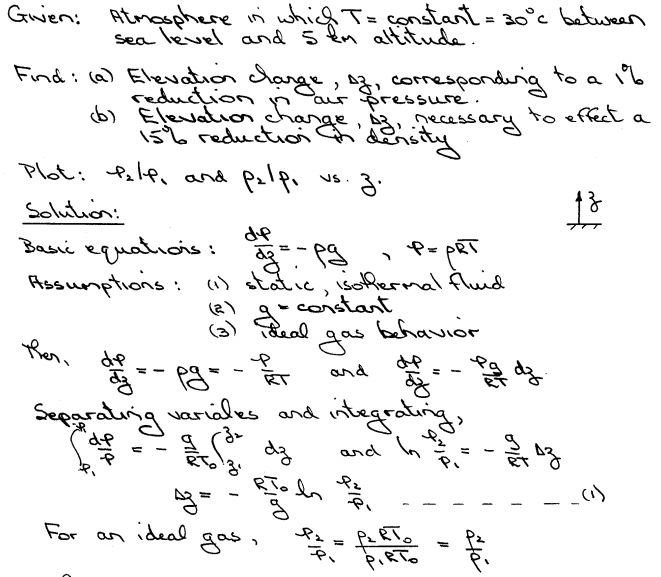 Given: Atmosphere in which T = constant = 30°c between
sea level and 5 km altitude.
Find: (a) Elevation change, Δz, corresponding to a 1%
reduction in air pressure.
(b) Elevation change, Δz, necessary to effect a
15% reduction in density
Plot: p₂/p₁ and ρ₂/ρ₁ vs. z.
Solution:
z
Basic equations: dp/dz = -ρg , p = ρRT
Assumptions: (1) static, isothermal fluid
(2) g = constant
(3) ideal gas behavior
Then, dp/dz = -ρg = - p/RT and dp/dz = - pg/RT dz
Separating variables and integrating,
∫ₚ₁ᵖ² dp/p = - g/RT₀ ∫_z₁^z₂ dz and ln p₂/p₁ = - g/RT Δz
Δz = - RT₀/g ln p₂/p₁ _ _ _ _ _ _ (1)
For an ideal gas, p₂/p₁ = ρ₂RT₀/ρ₁RT₀ = ρ₂/ρ₁